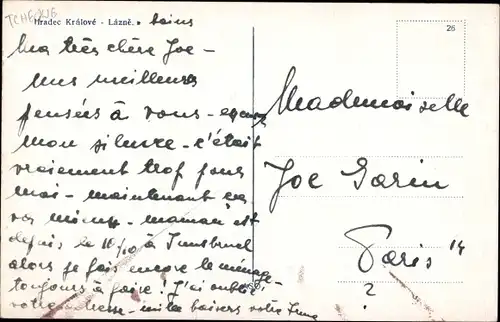 TCHEQUE
Hradec Králové - Lázně. bains
26
Ma très chère Joe -
mes meilleures
pensées à vous - excusez
mon silence - c'était
vraiement trop pour
moi - maintenant ça
va mieux - maman est
depuis le 16/10 à Innsbruck
alors je fais encore le ménage -
toujours à faire ! J'ai oublié
votre adresse - mille baisers votre
Mademoiselle
Joe Garin
Paris 14
?